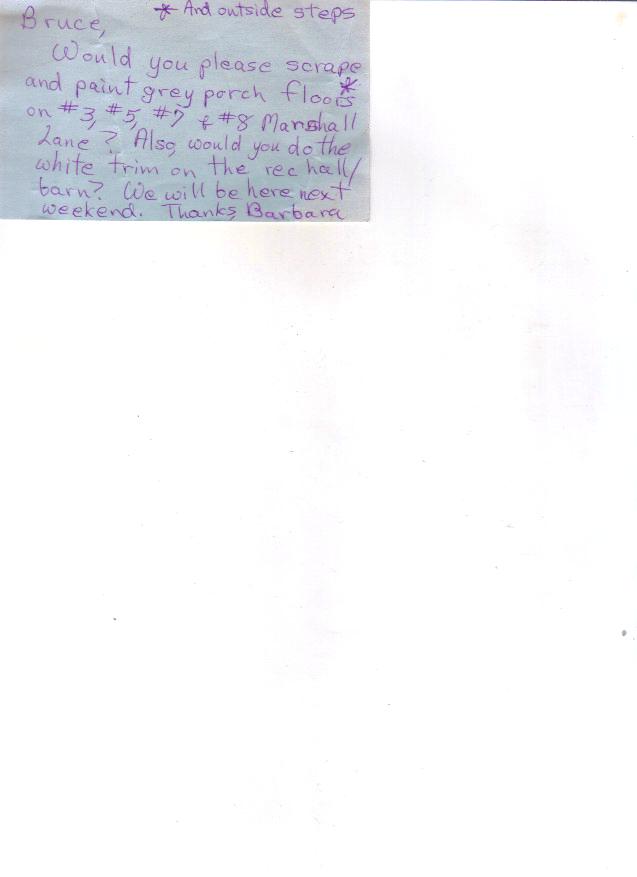 Bruce,
* And outside steps
Would you please scrape
and paint grey porch floors*
on #3, #5, #7 & #8 Marshall
Lane? Also, would you do the
white trim on the rec hall/
barn? We will be here next
weekend. Thanks, Barbara